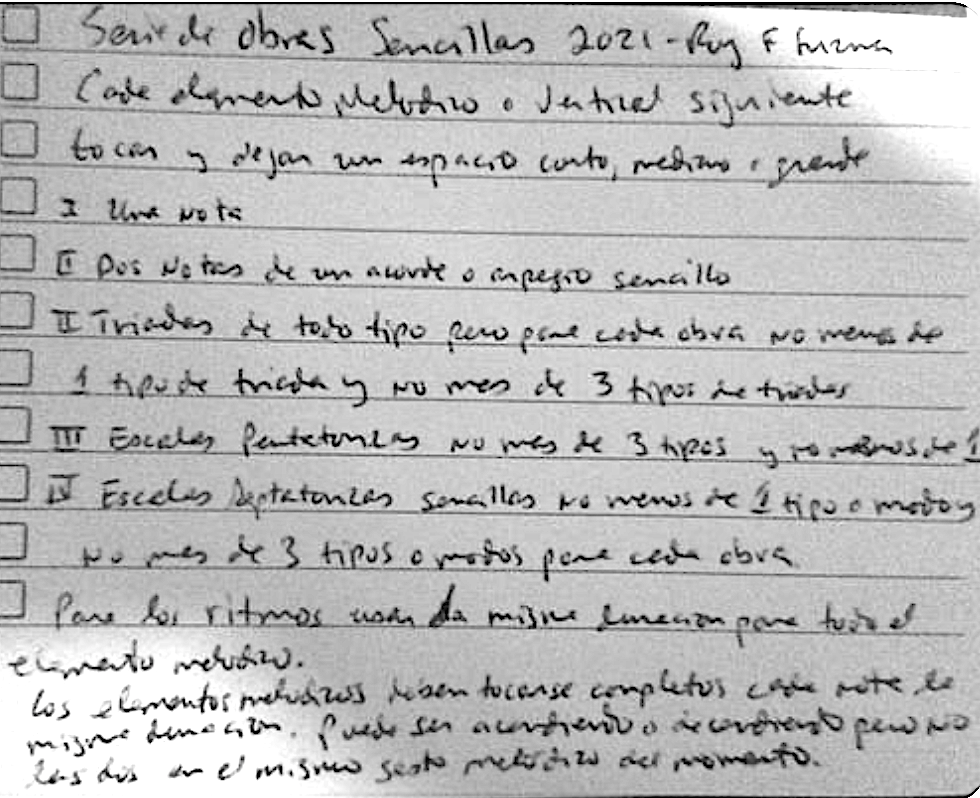 Serie de Obras Sencillas 2021 - Roy F
Cada elemento Melodico o Vertical siguiente
tocar y dejar un espacio corto, mediano o grande
I Una Nota
II Dos Notas de un acorde o arpegio sencillo
II Triadas de todo tipo pero para cada obra no menos de
1 tipo de triada y no mas de 3 tipos de triadas
III Escalas Pentatonicas no mas de 3 tipos y no menos de 1
IV Escalas Septatonicas sencillas no menos de 1 tipo o modo y
no mas de 3 tipos o modos para cada obra
Para los ritmos usar la misma duracion para todo el
elemento melodico.
Los elementos melodicos deben tocarse completos cada nota la
misma duracion. Puede ser acendiendo o decendiendo pero no
las dos en el mismo gesto melodico del momento.